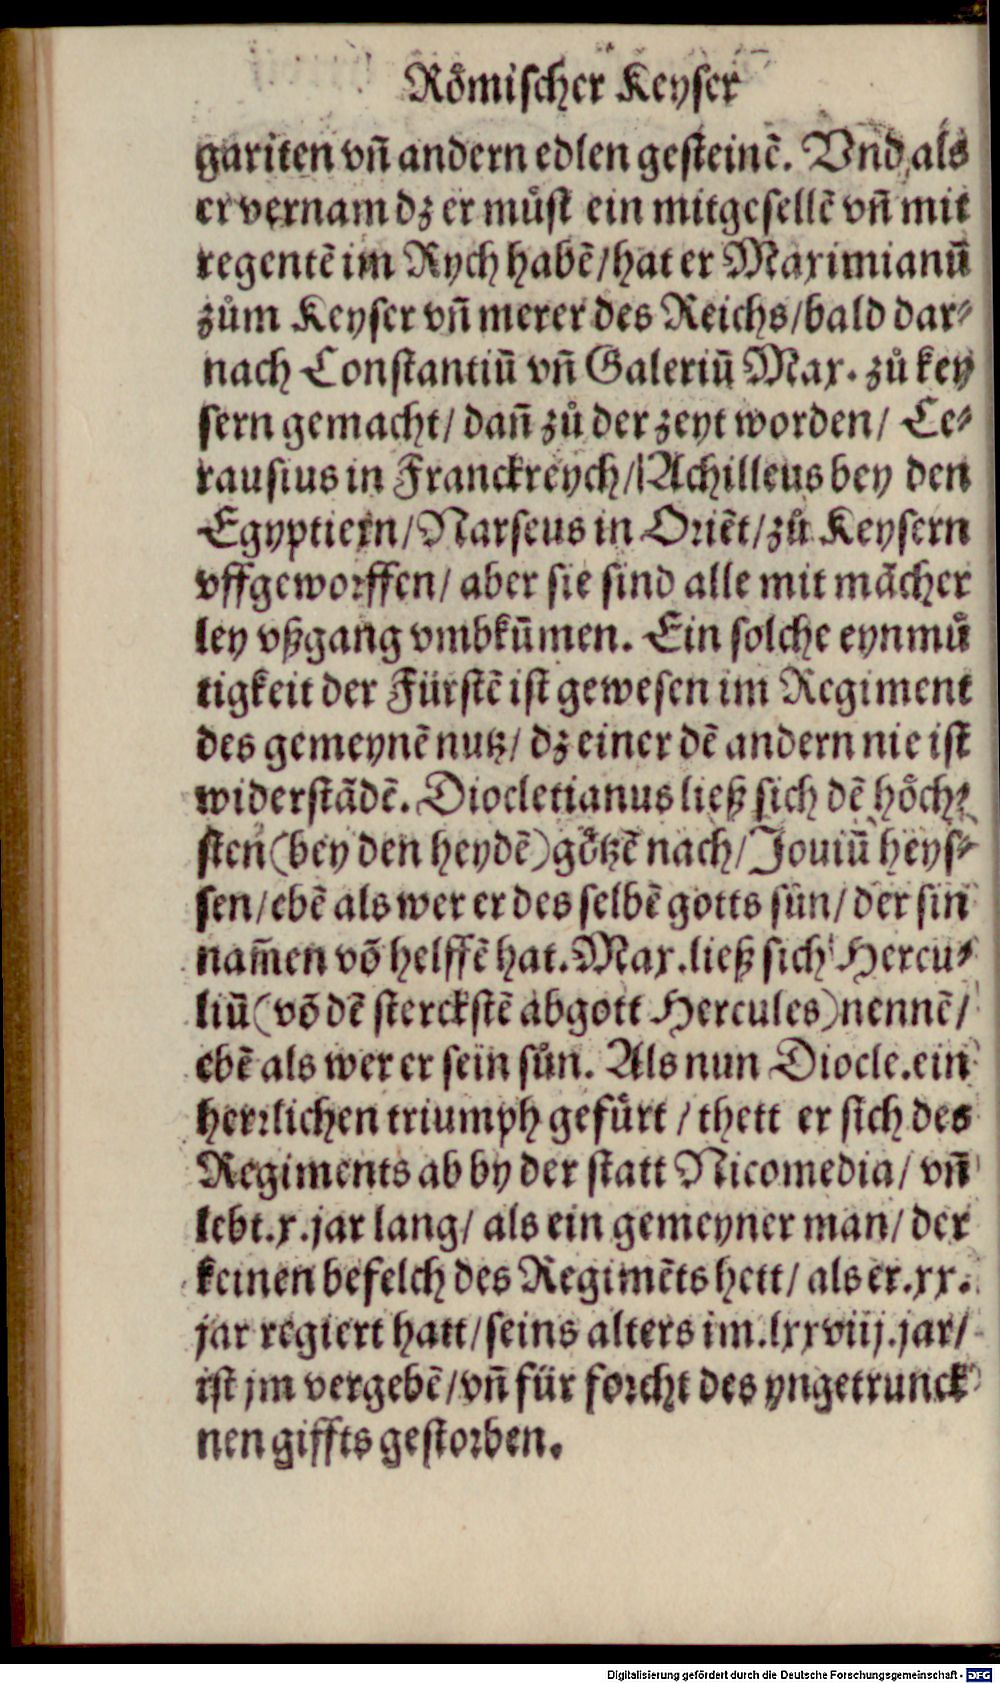 Roͤmischer Keyser
gariten vñ andern edlen gesteinẽ. Vnd als
er vernam dz er muͤst ein mitgesellẽ vñ mit
regentẽ im Rych habẽ/hat er Maximianũ
zům Keyser vñ merer des Reichs/bald dar⸗
nach Constantiũ vñ Galeriũ Max. zů key
sern gemacht/ dañ zů der zeyt worden/ Ce⸗
rausius in Franckreych/Achilleus bey den
Egyptiern/Narseus in Oriẽt/zů Keysern
vffgeworffen/ aber sie sind alle mit mãcher
ley vßgang vmbkũmen. Ein solche eynmuͤ
tigkeit der Fürstẽ ist gewesen im Regiment
des gemeynẽ nutz/ dz einer dẽ andern nie ist
widerstãdẽ. Diocletianus ließ sich dẽ hoͤch⸗
sten (bey den heydẽ) goͤtzẽ nach/Jouiũ heys⸗
sen/ebẽ als wer er des selbẽ gotts sün/ der sin
nam̃en võ helffẽ hat. Max.ließ sich Hercu⸗
liũ (võ dẽ sterckstẽ abgott Hercules) nennẽ/
ebẽ als wer er sein sůn. Als nun Diocle.ein
herrlichen triumph gefuͤrt / thett er sich des
Regiments ab by der statt Nicomedia/ vñ
lebt.x.jar lang/ als ein gemeyner man/ der
keinen befelch des Regimẽts hett/ als er.xx.
jar regiert hatt/seins alters im.lxxviij.jar/
ist jm vergebẽ/vñ für forcht des yngetrunck
nen giffts gestorben.
Digitalisierung gefördert durch die Deutsche Forschungsgemeinschaft - DFG